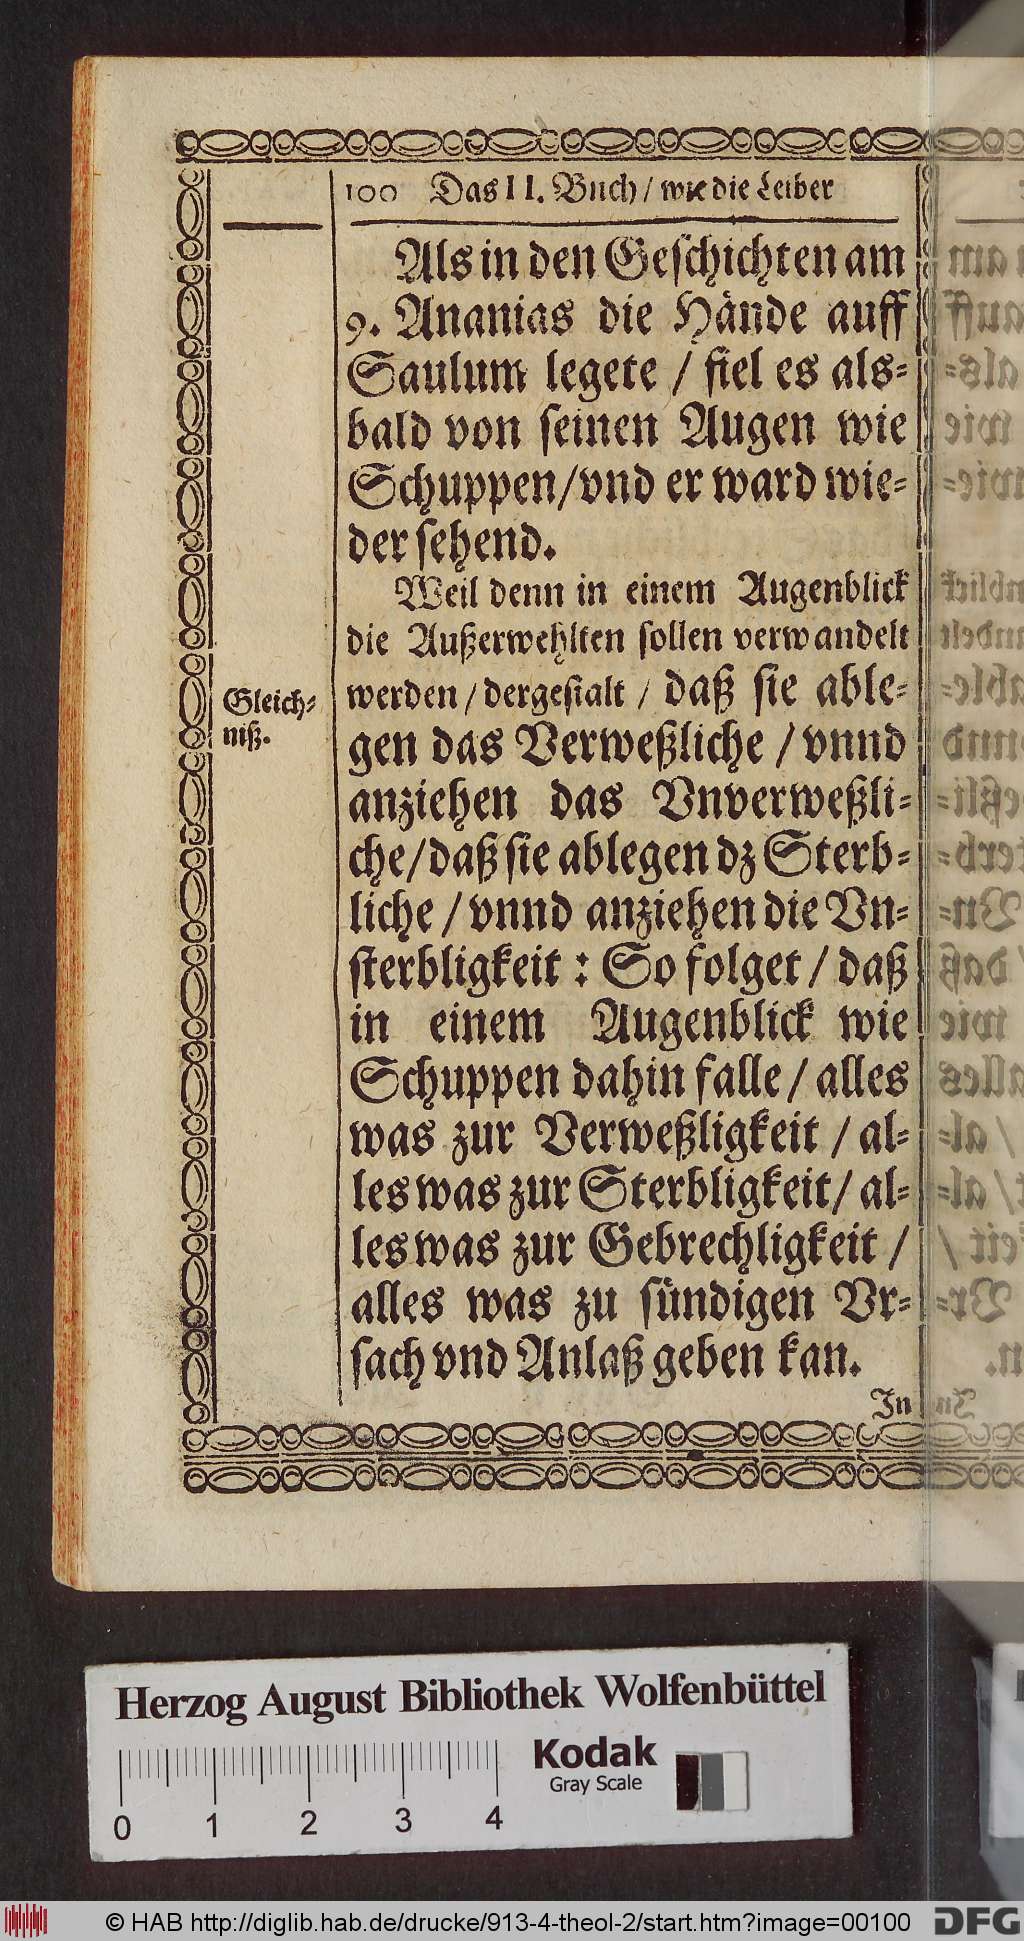 100 Das II. Buch / wie die Leiber
Als in den Geschichten am
9. Ananias die Hände auff
Saulum legete / fiel es als-
bald von seinen Augen wie
Schuppen/vnd er ward wie-
der sehend.
Weil denn in einem Augenblick
die Außerwehlten sollen verwandelt
Gleich-
niß.
werden / dergestalt / daß sie able-
gen das Verweßliche / vnnd
anziehen das Vnverweßli-
che/daß sie ablegen dz Sterb-
liche / vnnd anziehen die Vn-
sterbligkeit : So folget / daß
in einem Augenblick wie
Schuppen dahin falle / alles
was zur Verweßligkeit / al-
les was zur Sterbligkeit/ al-
les was zur Gebrechligkeit /
alles was zu sündigen Vr-
sach vnd Anlaß geben kan.
In
Herzog August Bibliothek Wolfenbüttel
Kodak
Gray Scale
0 1 2 3 4
© HAB http://diglib.hab.de/drucke/913-4-theol-2/start.htm?image=00100
DFG